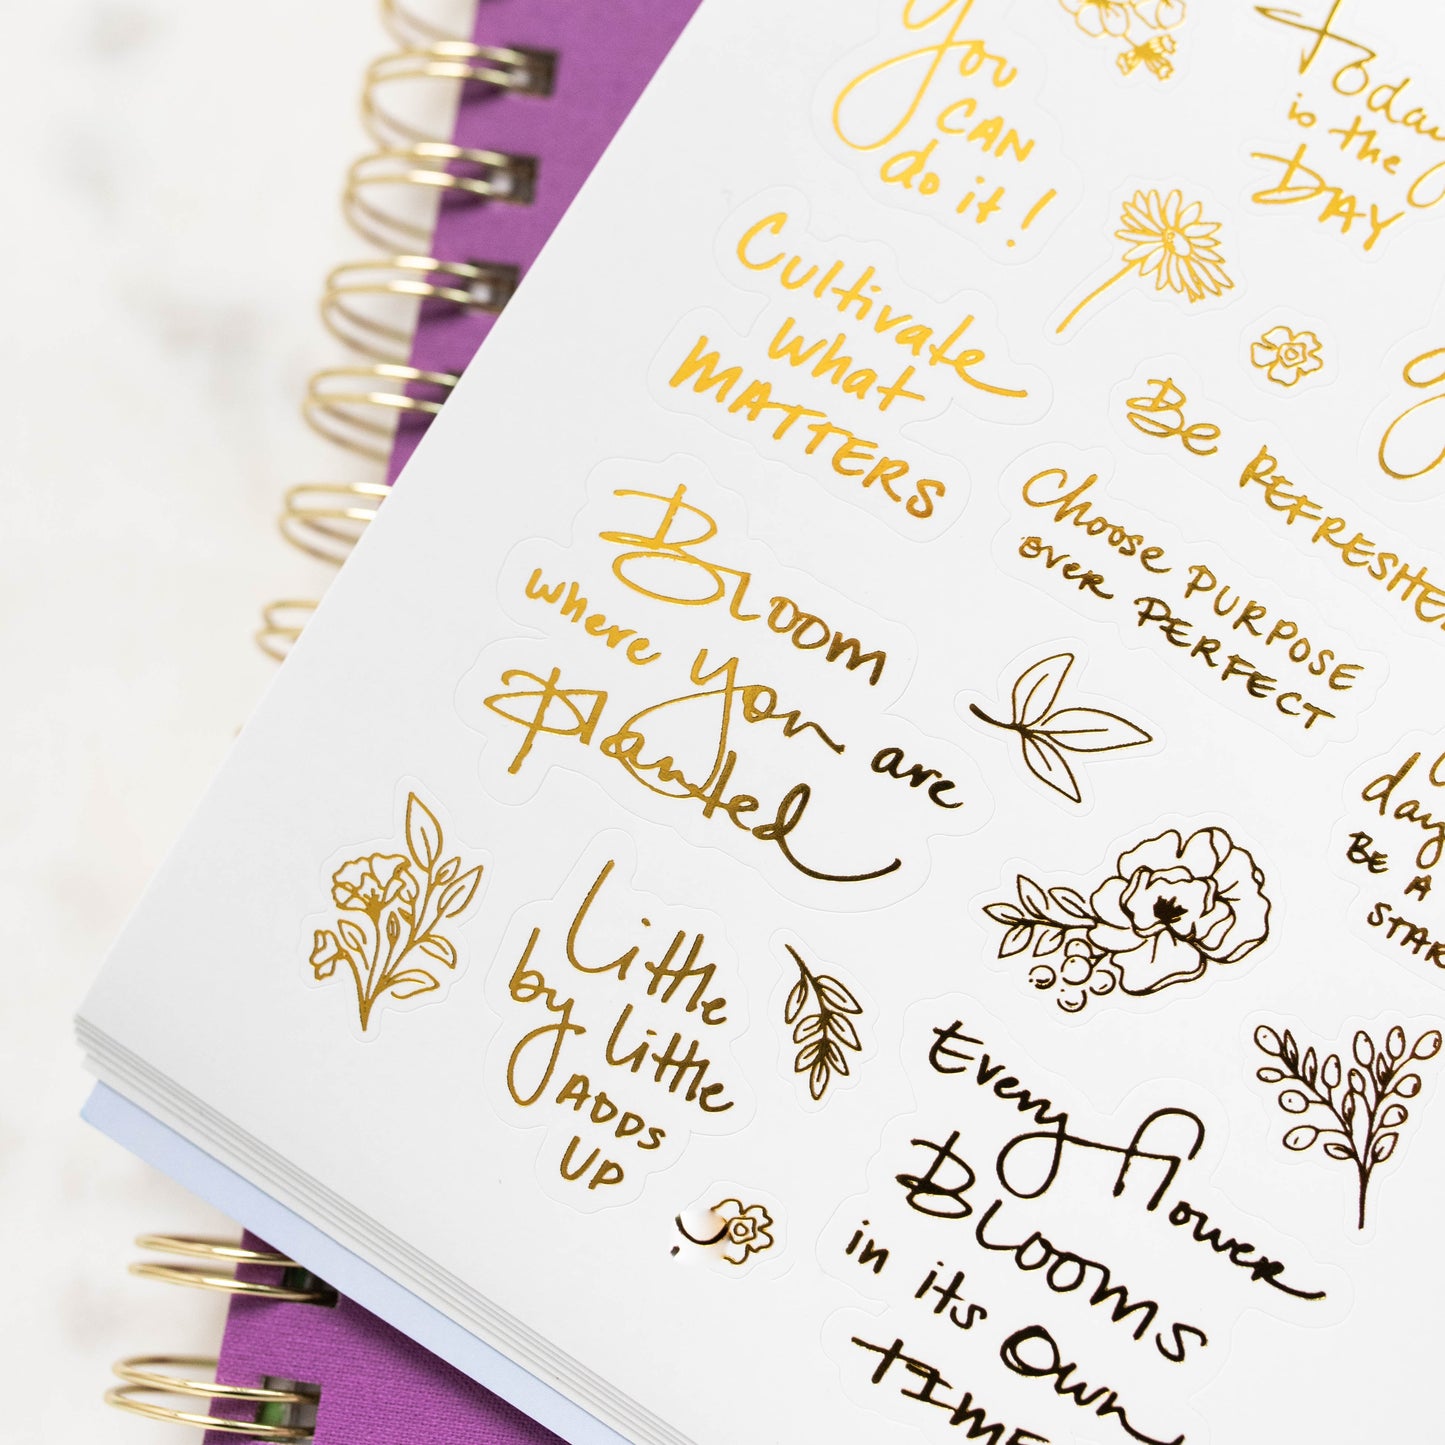 You
CAN
do it!
Today
is the
DAY
Cultivate
what
MATTERS
Be REFRESHE
Choose PURPOSE
over PERFECT
Bloom
where you are
Planted
day
BE A
STAR
Little
by little
ADDS
UP
Every flower
BLOOMS
in its Own
TIME